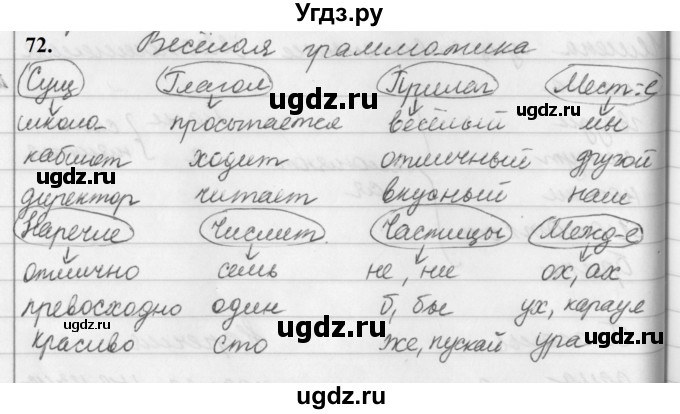 Угдз.ру
72. Весёлая грамматика
Сущ Глагол Прилаг Мест-е
школа просыпается весёлый мы
кабинет ходит отличный другой
директор читает вкусный наш
Наречие Числит. Частицы Межд-е
отлично семь не, ни ох, ах
превосходно один б, бы ух, караул
красиво сто же, пускай ура
ugdz.ru ugdz.ru
ugdz.ru ugdz.ru ugdz.ru
ugdz.ru ugdz.ru ugdz.ru
ugdz.ru ugdz.ru
ugdz.ru ugdz.ru ugdz.ru
ugdz.ru ugdz.ru